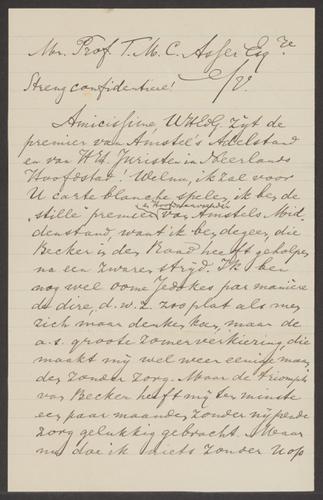 Mr. Prof. T. M. C. Asser Esq.re
S/V.
Streng confidentieel!
Amicissime, WEdG. zyt de
premier van Amstel's Adelstand
en van HH. Juristen in Neerlands
Hoofdstad! Welnu, ik zal voor
U carte blanche spelen, ik ben de
stille premier van Amstels Mid
denstand, want ik ben degeen die
Becker in den Raad heeft geholpen
na een zwaren stryd. Ik ben
nog wel oome Jedtkes par manière
de dire, d. w. z. zoo plat als men
zich maar denken kan, maar de
a. s. groote zomerverkiezing, die
maakt my wel weer eenige maan
den zonder zorg. Maar de triomph
van Becker heeft my ten minste
een paar maanden zonder nypende
zorg gelukkig gebracht. Maar
nu doe ik niets zonder Uop